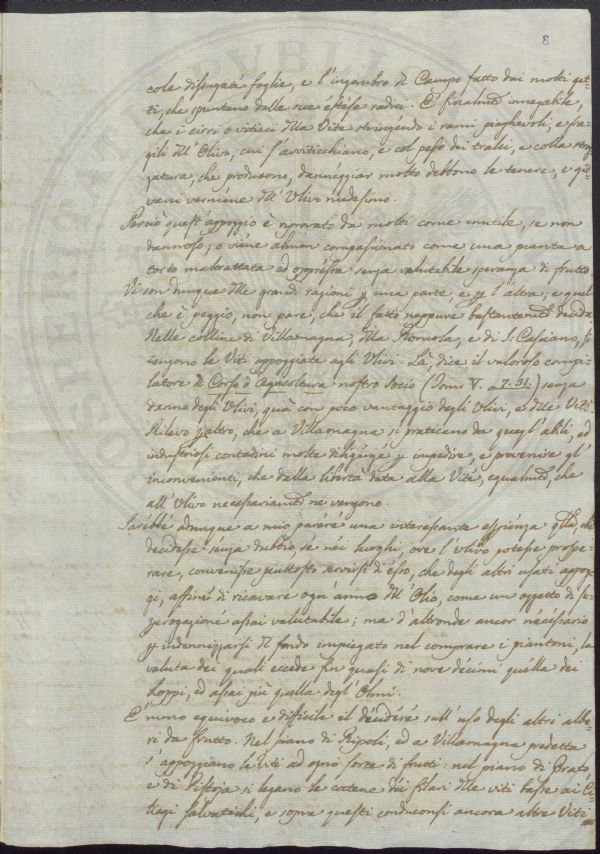 8
cole disseccate foglie, e l'ingombro del Campo fatto dai molti get=
ti, che spuntano dalle sue estese radici. È finalmte innegabile,
che i cirri o viticci della Vite stringendo i rami pieghevoli, e fra=
gili dell'Olivo, cui s'avviticchiano, e col peso dei tralci, e colla
, che producono, danneggiar molto debbono le tenere, e gio=
vani vermène dell'Ulivo medesimo.
Perciò quest'appoggio è riprovato da molti come inutile, se non
dannoso; o viene almen compassionato come una pianta a
torto maltrattata ed oppressa senza valutabile speranza di frutto.
Vi son dunque delle grandi ragioni p una parte, e p l'altra; e quel
che è peggio, non pare, che il fatto neppure bastantemte decida.
Nelle colline di Villamagna, della Romola, e di S: Casciano, si
tengono le Viti appoggiate agli Ulivi. Là, dice il valoroso compi=
latore del Corso d'Agricoltura nostro Socio (Tomo V. a 7. 31.) senza
danno degli Ulivi, quà con poco vantaggio degli Ulivi, e delle Viti.
Rilevo p altro, che a Villamagna si praticano da quegl'abili, ed
industriosi contadini molte diligenze p impedire, e prevenire gl'
inconvenienti, che dalla libertà data alla Vite, egualmte, che
all'Ulivo necessariamte ne vengono.
Sarebbe adunque a mio parere una interessante esperienza qlla, che
decidesse senza dubbio, se nei luoghi, ove l'ulivo potesse prospe=
rare, convenisse piuttosto servirsi d'esso, che degli altri usati appog=
gi, affine di ricavare ogn'anno dell'Olio, come un oggetto di su=
perogazione assai valutabile; ma d'altronde ancor necessario
p indennizzarsi del fondo impiegato nel comprare i piantoni, la
valuta dei quali eccede fin quasi di nove decimi quella dei
Loppi, ed assai più quella degl'Olmi.
È meno equivoco e difficile il decidere sull'uso degli altri albe=
ri da frutto. Nel piano di Ripoli, ed a Villamagna predetta
s'appoggiano le Viti ad ogni sorte di frutti: nel piano di Prato,
e di Pistoja si legano le catene dei filari delle viti basse ai Ci=
liegi salvatichi, e sopra questi conduconsi ancora altre Viti=